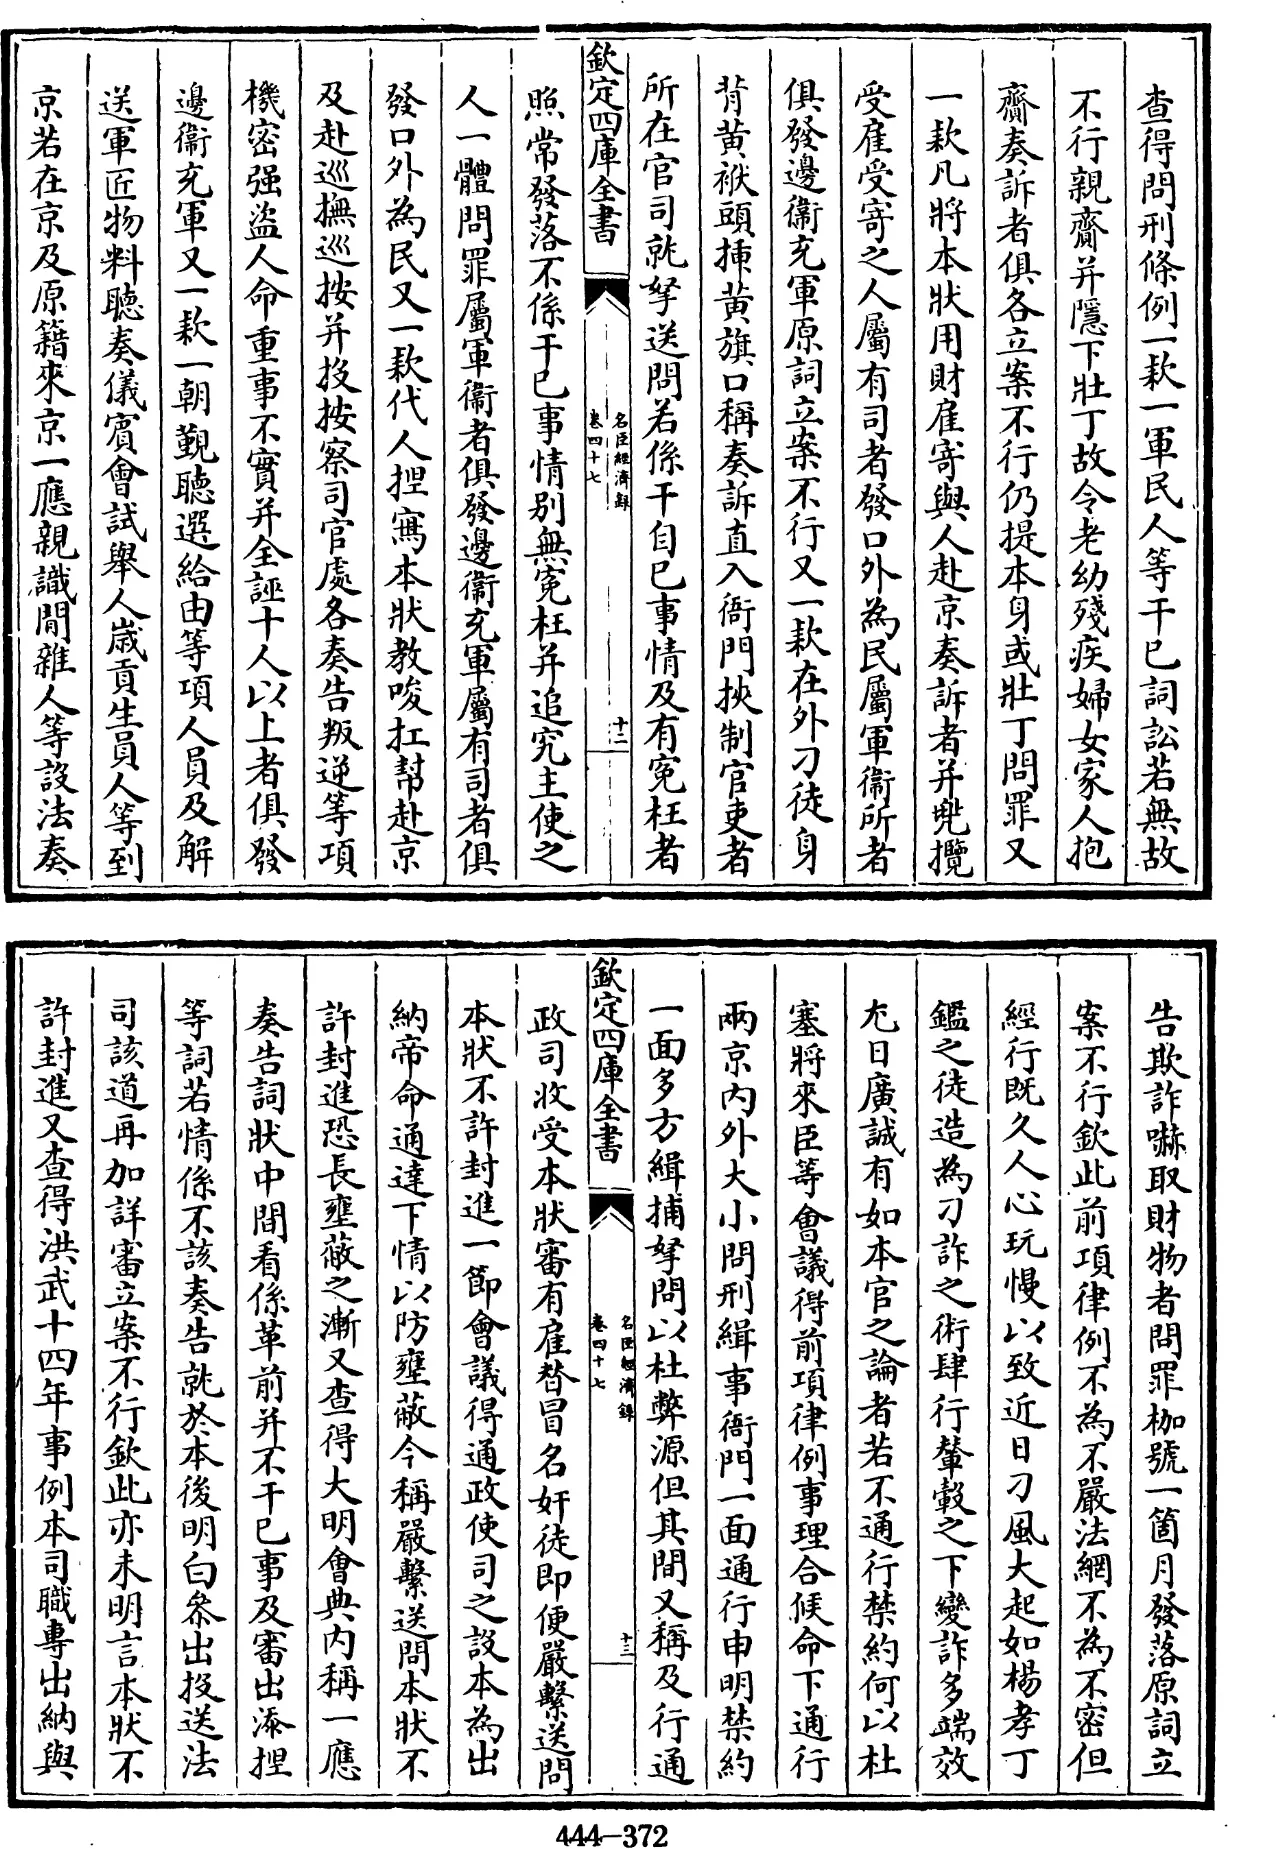 查得問刑條例一款一軍民人等干已詞訟若無故
不行親齎并隱下壯丁故令老幼殘疾婦女家人抱
齎奏訴者俱各立案不行仍提本身或壯丁問罪又
一款凡將本狀用財雇寄與人赴京奏訴者并兠攬
受雇受寄之人屬有司者發口外為民屬軍衛所者
俱發邊衛充軍原詞立案不行又一款在外刁徒身
背黄袱頭揷黄旗口稱奏訴直入衙門挾制官吏者
所在官司就拏送問若係干自已事情及有寃枉者
欽定四庫全書
名臣經濟録
卷四十七
十二
照常發落不係干已事情别無寃枉并追究主使之
人一體問罪屬軍衛者俱發邊衛充軍屬有司者俱
發口外為民又一款代人揑寫本狀教唆扛幇赴京
及赴巡撫巡按并投按察司官處各奏告叛逆等項
機密强盗人命重事不實并全誣十人以上者俱發
邊衛充軍又一款一朝覲聽選給由等項人員及解
送軍匠物料聽奏儀賓會試舉人嵗貢生員人等到
京若在京及原籍來京一應親識閒雜人等設法奏
告欺詐嚇取財物者問罪枷號一箇月發落原詞立
案不行欽此前項律例不為不嚴法網不為不密但
經行既久人心玩慢以致近日刁風大起如楊孝丁
鑑之徒造為刁詐之術肆行輦轂之下變詐多端效
尤日廣誠有如本官之論者若不通行禁約何以杜
塞將來臣等會議得前項律例事理合候命下通行
兩京内外大小問刑緝事衙門一面通行申明禁約
一面多方緝捕拏問以杜弊源但其間又稱及行通
欽定四庫全書
名臣經濟録
卷四十七
十三
政司收受本狀審有雇替冒名奸徒即便嚴繫送問
本狀不許封進一節會議得通政使司之設本為出
納帝命通達下情以防壅蔽今稱嚴繫送問本狀不
許封進恐長壅蔽之漸又查得大明會典内稱一應
奏告詞狀中間看係革前并不干已事及審出添揑
等詞若情係不該奏告就於本後明白叅出投送法
司該道再加詳審立案不行欽此亦未明言本狀不
許封進又查得洪武十四年事例本司職專出納與
444-372